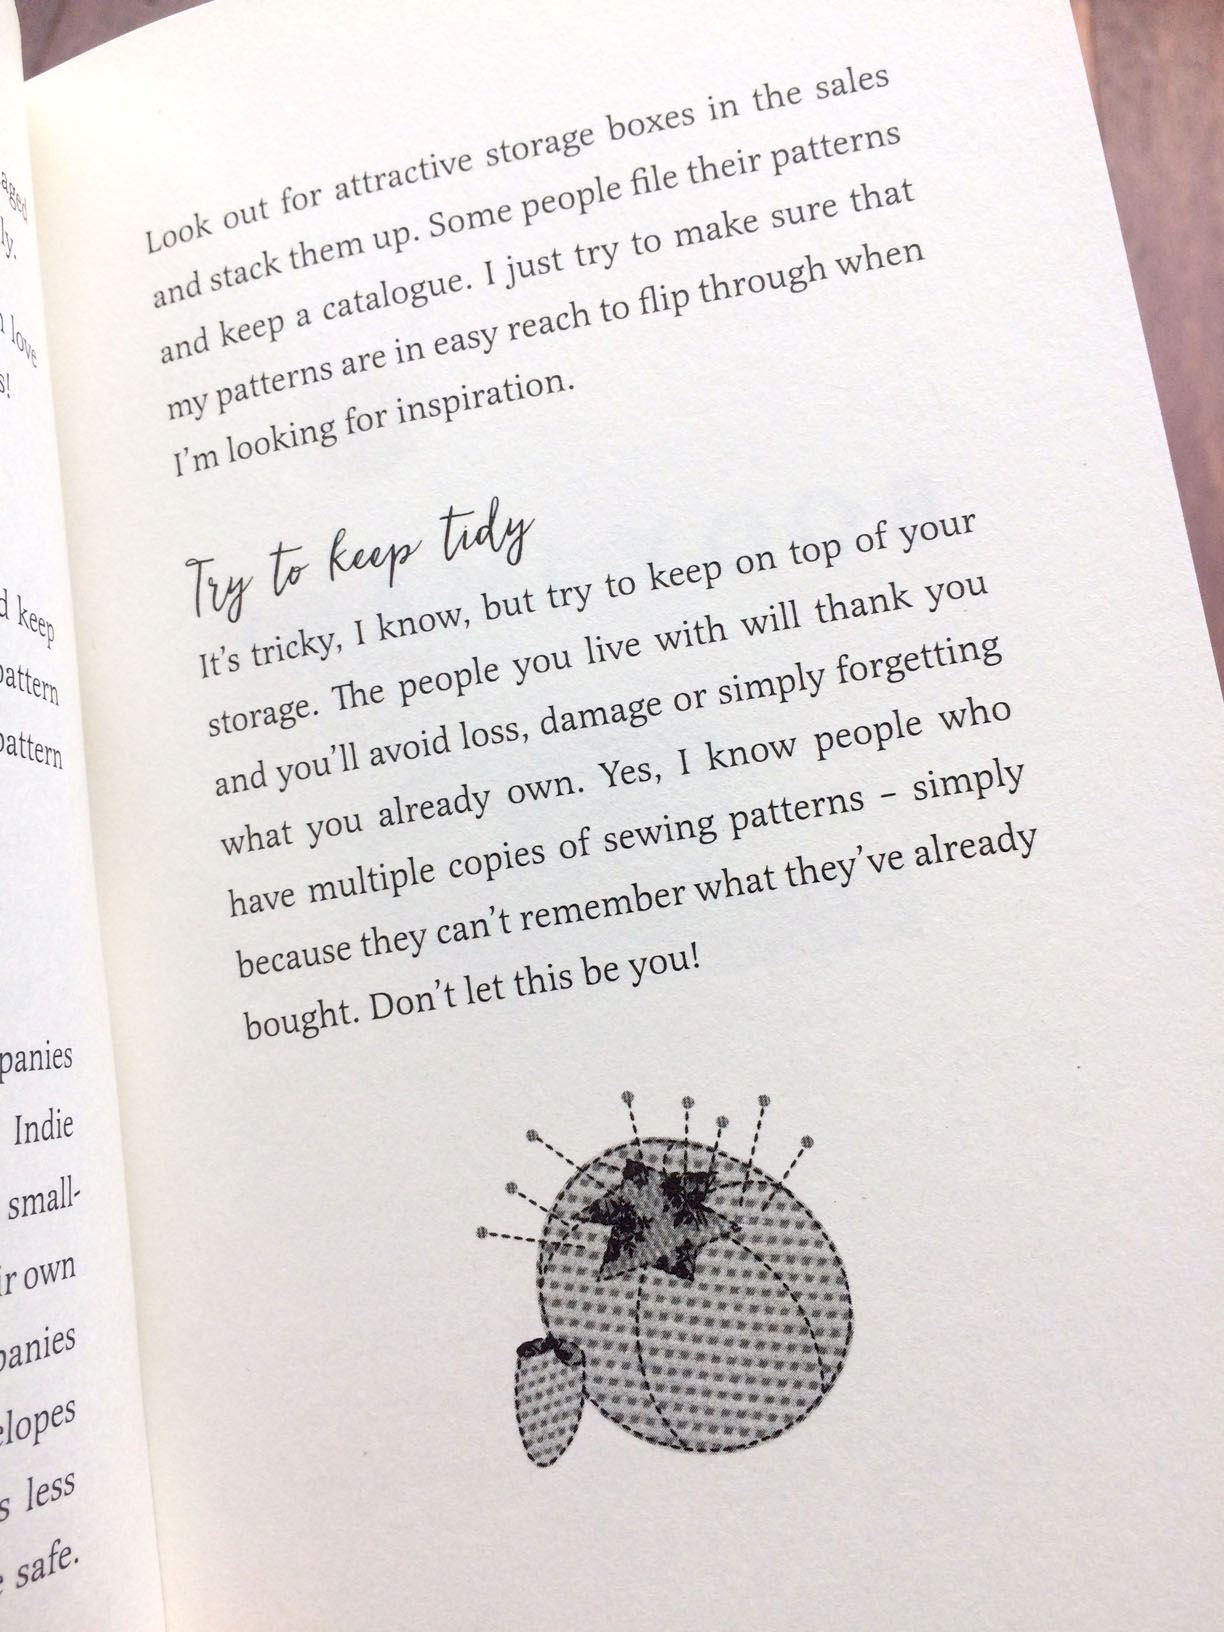 aged
ly.
love
s!
d keep
pattern
pattern
panies
Indie
small-
ir own
panies
elopes
s less
safe.
Look out for attractive storage boxes in the sales
and stack them up. Some people file their patterns
and keep a catalogue. I just try to make sure that
my patterns are in easy reach to flip through when
I'm looking for inspiration.
Try to keep tidy
It's tricky, I know, but try to keep on top of your
storage. The people you live with will thank you
and you'll avoid loss, damage or simply forgetting
what you already own. Yes, I know people who
have multiple copies of sewing patterns – simply
because they can't remember what they've already
bought. Don't let this be you!